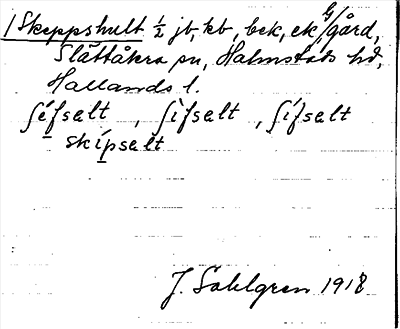 /Skeppshult ½ jb, kb, bek, ek b/gård,
Slättåkra sn, Halmstads hd,
Hallands l.
ʃéfselt, ʃifselt, ʃífselt
skípselt
J. Sahlgren 1918